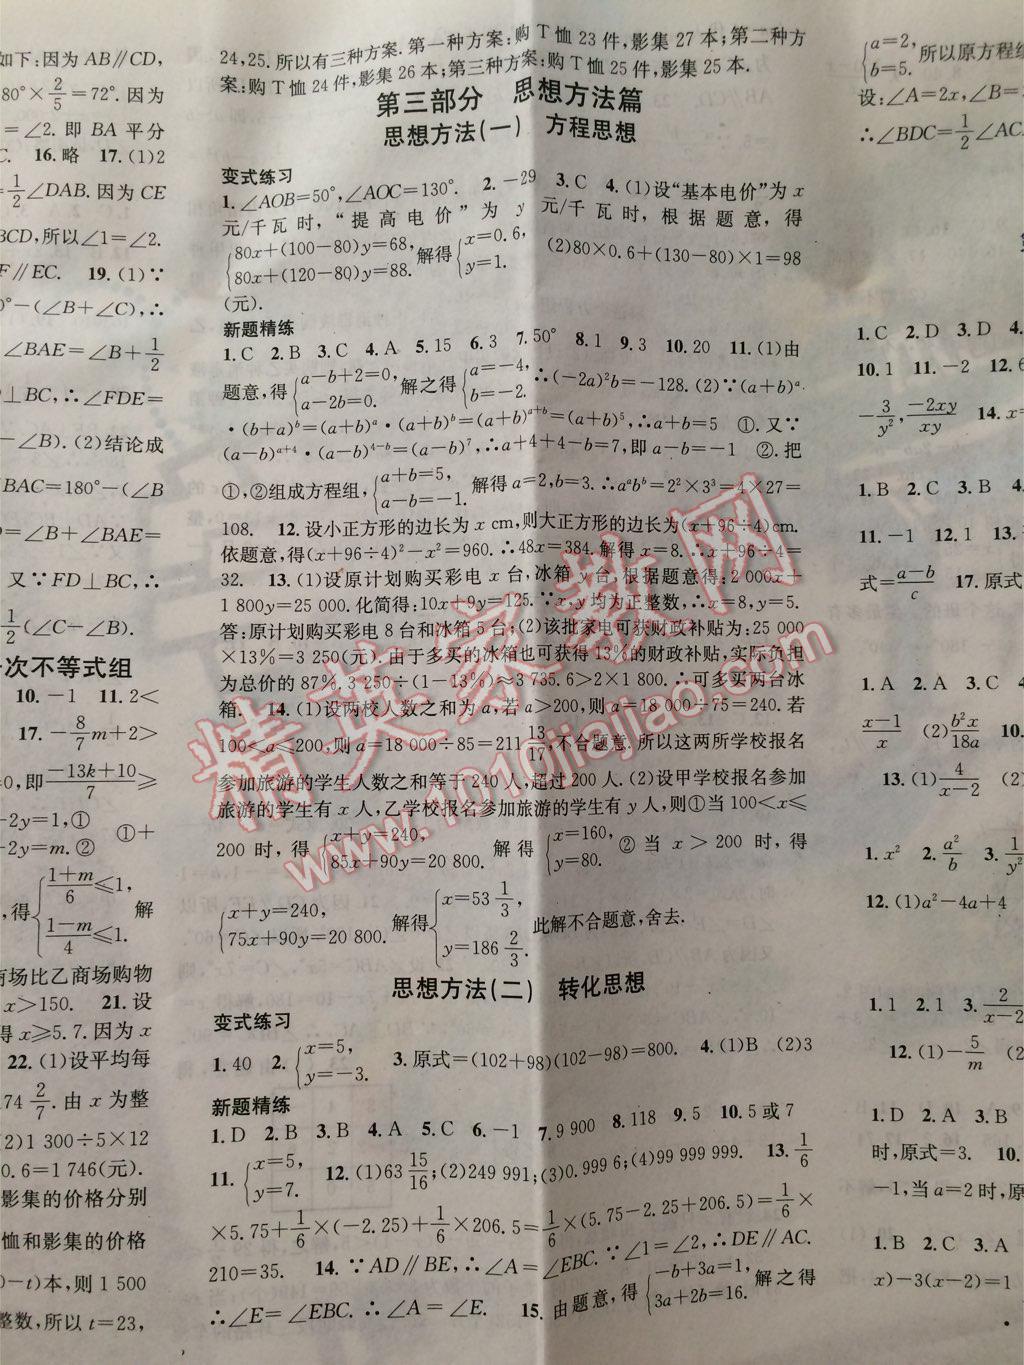 如下:因为AB∥CD,
80°×2/5=72°. 因为
=∠2. 即 BA 平分
C. 16.略 17.(1)2
1/2∠DAB. 因为 CE
BCD,所以∠1=∠2.
F∥EC. 19.(1)∵
0°-(∠B+∠C),∴
∠BAE=∠B+1/2
D⊥BC,∴∠FDE=
-∠B). (2)结论成
BAC=180°-(∠B
D=∠B+∠BAE=
又∵FD⊥BC,∴
1/2(∠C-∠B).
次不等式组
10.-1 11.2<
17.-8/7m+2>
=0,即(-13k+10)/7≥
-2y=1,① ①+
-2y=m.②
,得{(1+m)/6≤1, (1-m)/4≤1. 解
商场比乙商场购物
x>150. 21.设
得 x≥5.7. 因为 x
22.(1)设平均每
74 2/7. 由 x 为整
(2)1 300÷5×12
0.6=1 746(元).
影集的价格分别
恤和影集的价格
0-t)本,则 1 500
整数,所以 t=23,
24,25. 所以有三种方案. 第一种方案:购 T 恤 23 件,影集 27 本;第二种方
案:购 T 恤 24 件,影集 26 本;第三种方案:购 T 恤 25 件,影集 25 本.
第三部分 思想方法篇
思想方法(一) 方程思想
变式练习
1.∠AOB=50°,∠AOC=130°. 2.-29 3.C 4.(1)设“基本电价”为 x
元/千瓦时,“提高电价”为 y 元/千瓦时,根据题意,得
{80x+(100-80)y=68, 80x+(120-80)y=88. 解得{x=0.6, y=1. (2)80×0.6+(130-80)×1=98
(元).
新题精练
1.C 2.B 3.C 4.A 5.15 6.3 7.50° 8.1 9.3 10.20 11.(1)由
题意,得{a-b+2=0, a-2b=0. 解之得{a=-4, b=-2. ∴(-2a)²b=-128. (2)∵(a+b)ᵃ
·(b+a)ᵇ=(a+b)ᵃ·(a+b)ᵇ=(a+b)ᵃ⁺ᵇ=(a+b)⁵,∴a+b=5 ①. 又∵
(a-b)ᵃ⁺⁴·(a-b)⁴⁻ᵇ=(a-b)⁷,∴a+4+4-b=7,即 a-b=-1 ②. 把
①,②组成方程组,{a+b=5, a-b=-1. 解得 a=2,b=3. ∴aᵃbᵇ=2²×3³=4×27=
108. 12.设小正方形的边长为 x cm,则大正方形的边长为(x+96÷4)cm.
依题意,得(x+96÷4)²-x²=960. ∴48x=384. 解得 x=8. ∴x+96÷4=
32. 13.(1)设原计划购买彩电 x 台,冰箱 y 台,根据题意得:2 000x+
1 800y=25 000. 化简得:10x+9y=125. ∵x,y 均为正整数,∴x=8,y=5.
答:原计划购买彩电 8 台和冰箱 5 台;(2)该批家电可获财政补贴为:25 000
×13%=3 250(元). 由于多买的冰箱也可获得 13%的财政补贴,实际负担
为总价的 87%. 3 250÷(1-13%)≈3 735.6>2×1 800. ∴可多买两台冰
箱. 14.(1)设两校人数之和为 a,若 a>200,则 a=18 000÷75=240. 若
100<a≤200,则 a=18 000÷85=211 13/17,不合题意. 所以这两所学校报名
参加旅游的学生人数之和等于 240 人,超过 200 人. (2)设甲学校报名参加
旅游的学生有 x 人,乙学校报名参加旅游的学生有 y 人,则①当 100<x≤
200 时,得{x+y=240, 85x+90y=20 800. 解得{x=160, y=80. ②当 x>200 时,得
{x+y=240, 75x+90y=20 800. 解得{x=53 1/3, y=186 2/3. 此解不合题意,舍去.
思想方法(二) 转化思想
变式练习
1.40 2.{x=5, y=-3. 3.原式=(102+98)(102-98)=800. 4.(1)B (2)3
新题精练
1.D 2.B 3.B 4.A 5.C 6.-1 7.9 900 8.118 9.5 10.5 或 7
11.{x=5, y=7. 12.(1)63 15/16;(2)249 991;(3)0.999 6;(4)99 999 999. 13.1/6
×5.75+1/6×(-2.25)+1/6×206.5=1/6×(5.75-2.25+206.5)=1/6×
210=35. 14.∵AD∥BE,∴∠A=∠EBC. ∵∠1=∠2,∴DE∥AC.
∴∠E=∠EBC. ∴∠A=∠E. 15.由题意,得{-b+3a=1, 3a+2b=16. 解之得
{a=2, b=5. 所以原方程组
设:∠A=2x,∠B=
∴∠BDC=1/2∠AC
1.C 2.D 3.D 4.
10.1 11.-2 12.6
-3/y²,-2xy/xy 14.x=
1.B 2.C 3.B 4.
11.-1 12.1 13.
式=(a-b)/c 17.原式
1.A 2.A 3.C 4
(x-1)/x (2)b²x/18a 10.
13.(1)4/(x-2) (2)
1.x² 2.a²/b 3.1/y²
12.(1)a²-4a+4
1.1 2.1 3.2/(x-2)
12.(1)-5/m (2
1.D 2.A 3.B
时,原式=3. 10.
-1,当 a=2 时,原
1.B 2.B 3.A
x)-3(x-2)=1
精英家教网
www.1010jiajiao.com